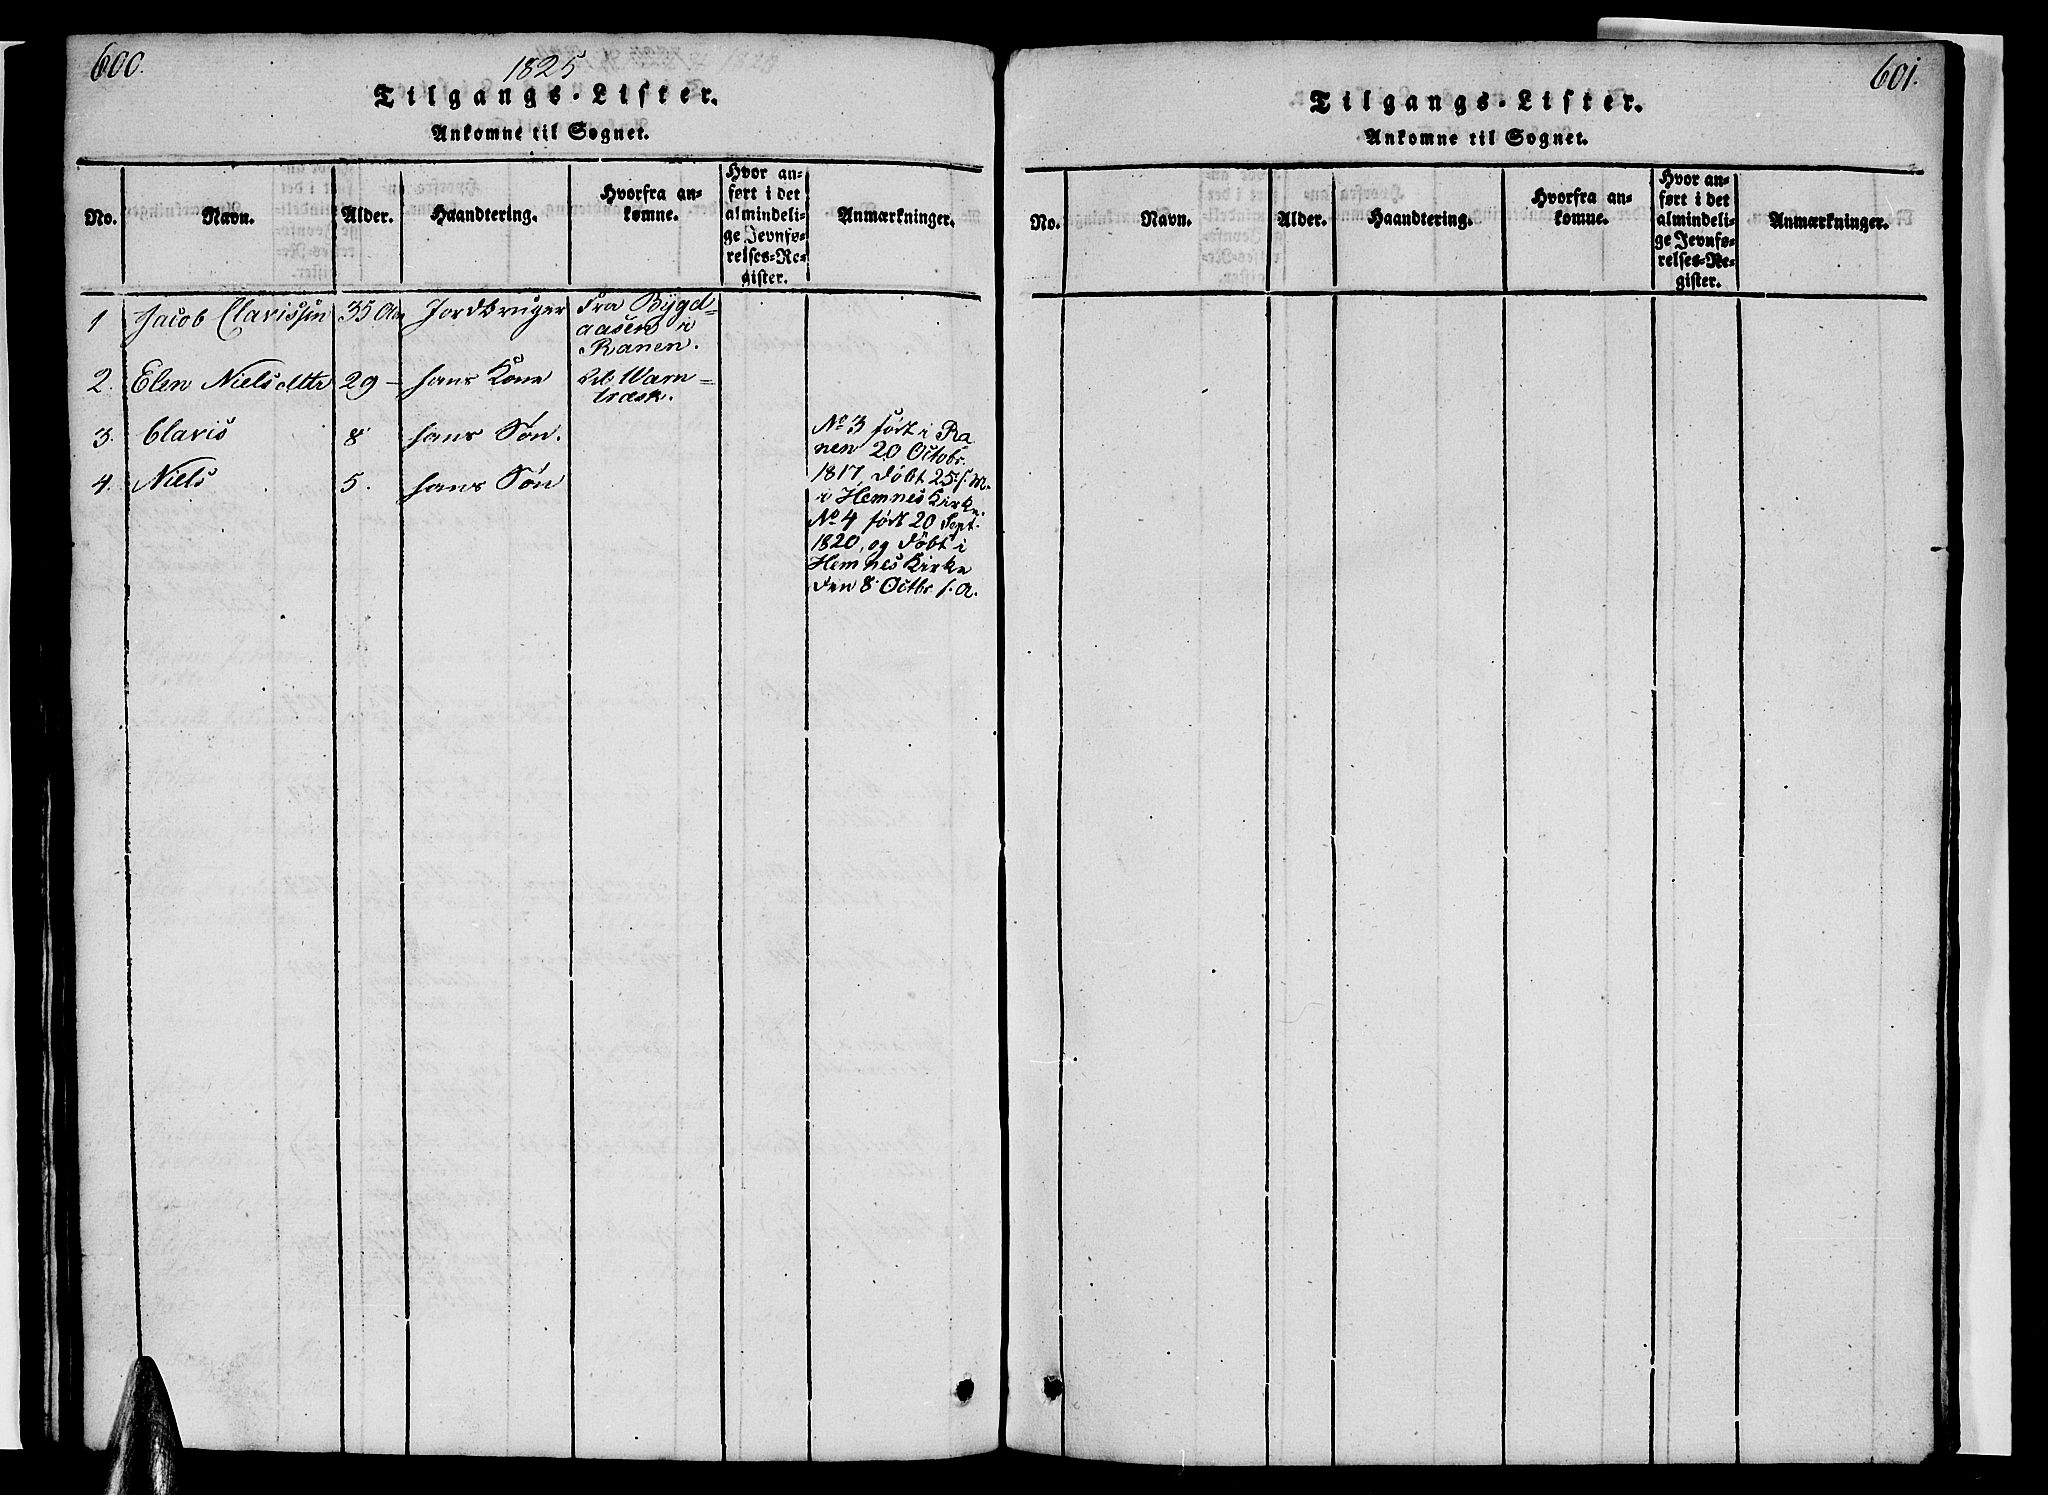 600.
1825
Tilgangs-Lister.
Ankomne til Sognet.
No. Navn. Alder. Haandtering. Hvorfra an-
komne. Hvor an-
ført i det
almindeli-
ge Jevnfø-
relses-Re-
gister. Anmærkninger.
1 Jacob Clarissen 35 Aar Jordbruger Fra Bygd-
aasen i
Ranen.
2. Elen Nielsdttr 29 – hans Kone til Warn-
træsk.
3. Claris 8 hans Søn.
4. Niels 5. hans Søn
No 3 født i Ra
nen 20 Octobr.
1817, døbt 25 s. M.
i Hemnes Kirke.
No 4 født 20 Sept.
1820, og døbt i
Hemnes Kirke
den 8 Octbr. s. A.
601.
Tilgangs-Lister.
Ankomne til Sognet.
No. Navn. Alder. Haandtering. Hvorfra an-
komne. Hvor an-
ført i det
almindeli-
ge Jevnfø-
relses-Re-
gister. Anmærkninger.